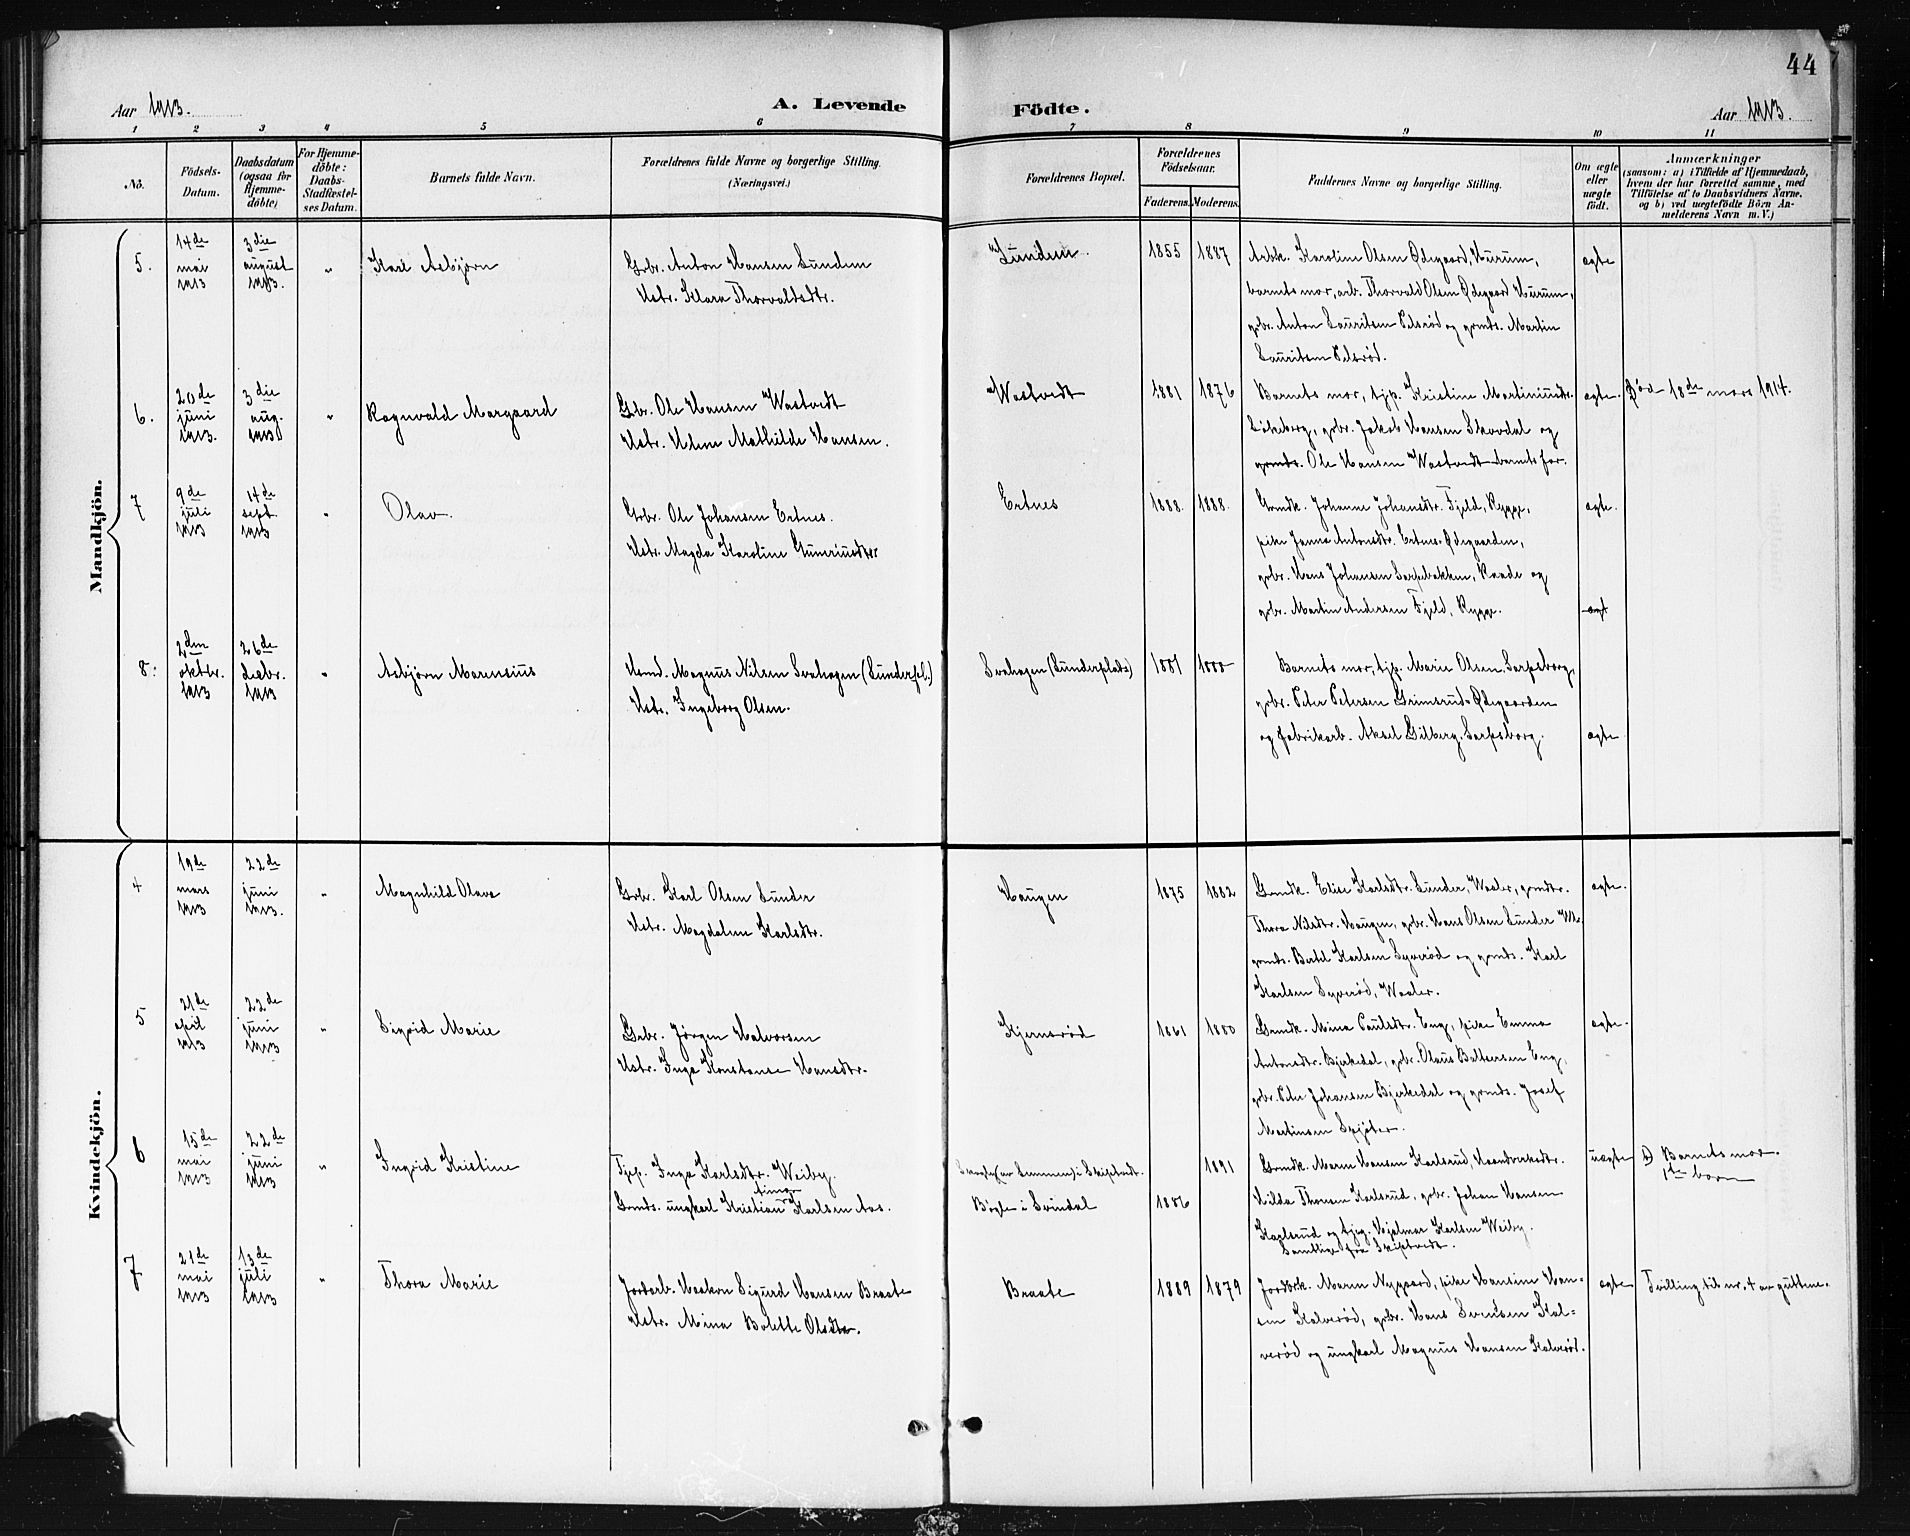 44
Aar 1913.
A. Levende
Födte.
Aar 1913.
1 2 3 4 5 6 7 8 9 10 11
No.
Födsels-
Datum.
Daabsdatum
(ogsaa for
Hjemme-
döbte)
For Hjemme-
döbte:
Daabs-
Stadfæstel-
ses Datum.
Barnets fulde Navn.
Forældrenes fulde Navne og borgerlige Stilling.
(Næringsvei.)
Forældrenes Bopæl.
Forældrenes
Födselsaar.
Faderens. Moderens.
Faddernes Navne og borgerlige Stilling.
Om ægte
eller
uægte
födt.
Anmærkninger
(saasom: a) i Tilfælde af Hjemmedaab,
hvem der har forrettet samme, med
Tilföielse af to Daabsvidners Navne.
og b) ved uegtefödte Börn An-
melderens Navn m.V.)
Mandkjön.
5.
14de
mai
1913
3die
august
1913.
"
Karl Asbjørn
Grbr. Anton Hansen Sundem
Hstr. Klara Thorvaldsdtr.
Sundem
1855 1887
Arbk. Karoline Olsen Ødegaard, Hurum,
barnets mor, arb. Thorvald Olsen Ødegaard Hurum,
grbr. Anton Lauritsen Pilsrød og grmds. Martin
Lauritsen Pilsrød.
ægte
6.
20de
juni
1913.
3die
aug.
1913
"
Ragnvald Margaard
Grbr. Ole Hansen Wastvedt
Hstr. Helene Mathilde Hansen.
Wastvedt
1881 1876
Barnets mor, tjp. Kristine Martiniusdtr.
Løkeberg, grbr. Jakob Hansen Skovdal og
grmds. Ole Hansen Wastvedt barnets far.
ægte.
Død 18de mars 1914.
7
9de
juli
1913
14de
sept.
1913
"
Olav.
Grbr. Ole Johansen Ertnes.
Hstr. Magda Karoline Guneriusdtr
Ertnes
1888. 1888.
Grmdk. Johanne Johansdtr. Fjeld, Rygge,
pike Janna Antonsdtr. Ertnes-Ødegaarden,
grbr. Hans Johansen Sarpebakken, Raade og
grbr. Martin Andersen Fjeld, Rygge.
ægte.
ægt
8:
2den
oktbr.
1913
26de
decbr.
1913
"
Asbjørn Marensius
Hsmd. Magnus Nilsen Svahagen (Sunderpl.)
Hstr. Ingeborg Olsen.
Svahagen (Sunderplads)
1881 1888
Barnets mor, tjp. Marie Olsen, Sarpsborg,
grbr. Peter Petersen Grimsrud-Ødegaarden
og fabrikarb. Aksel Gilberg, Sarpsborg.
ægte
Kvindekjön.
4
19de
mars
1913
22de
juni
1913.
"
Magnhild Olava
Grbr. Karl Olsen Sunder
Hstr. Magdalene Karlsdtr.
Haugen
1875 1882
Grmdk. Elise Karlsdtr. Sunder, Waaler, grmdtr.
Thora Nilsdtr. Haugen, grbr. Hans Olsen Sunder
grmds. Bertel Karlsen Syverød og grmds. Karl
Karlsen Syverød, Waaler.
ægte.
5
21de
april
1913
22de
juni
1913
"
Sigrid Marie
Grbr. Jørgen Halvorsen
Hstr. Inga Konstanse Hansdtr.
Kjernsrød
1861 1880
Grmdk. Mina Paulsdtr. Eng, pike Emma
Antonsdtr. Bjerkedal, grbr. Olaus Baltersen Eng,
grbr. Peter Johansen Bjerkedal og grmds. Josef
Martinsen
ægte.
6
15de
mai
1913
22de
juni
1913
"
Ingrid Kristine
Tjp. Inga Karlsdtr. Weiby.
Grmds. ungkarl Kristian Karlsen Aas.
i Skiptvedt.
Bøgle i Svindal
1891
1886
Grmdk. Maren Hansen Karlsrud, Haandverksdtr.
Hilda Thorsen Karlsrud, grbr. Johan Hansen
Karlsrud og tjg. Hjalmar Karlsen Weiby.
Samtlige fra Skiptvedt.
uægte
Barnets mor.
1te barn
7
21de
mai
1913
13de
juli
1913
"
Thora Marie
Jordarb. Haakon Sigurd Hansen Braate
Hstr. Mina Bolette Olsdtr.
Braate
1889 1879
Jordbrk. Maren Nygaard, pike Hansine Han-
sen Kalverød, grbr. Hans Svensen Kal-
verød og ungkarl Magnus Hansen Kalverød.
ægte
Tvilling til nr. 4 av guttene.